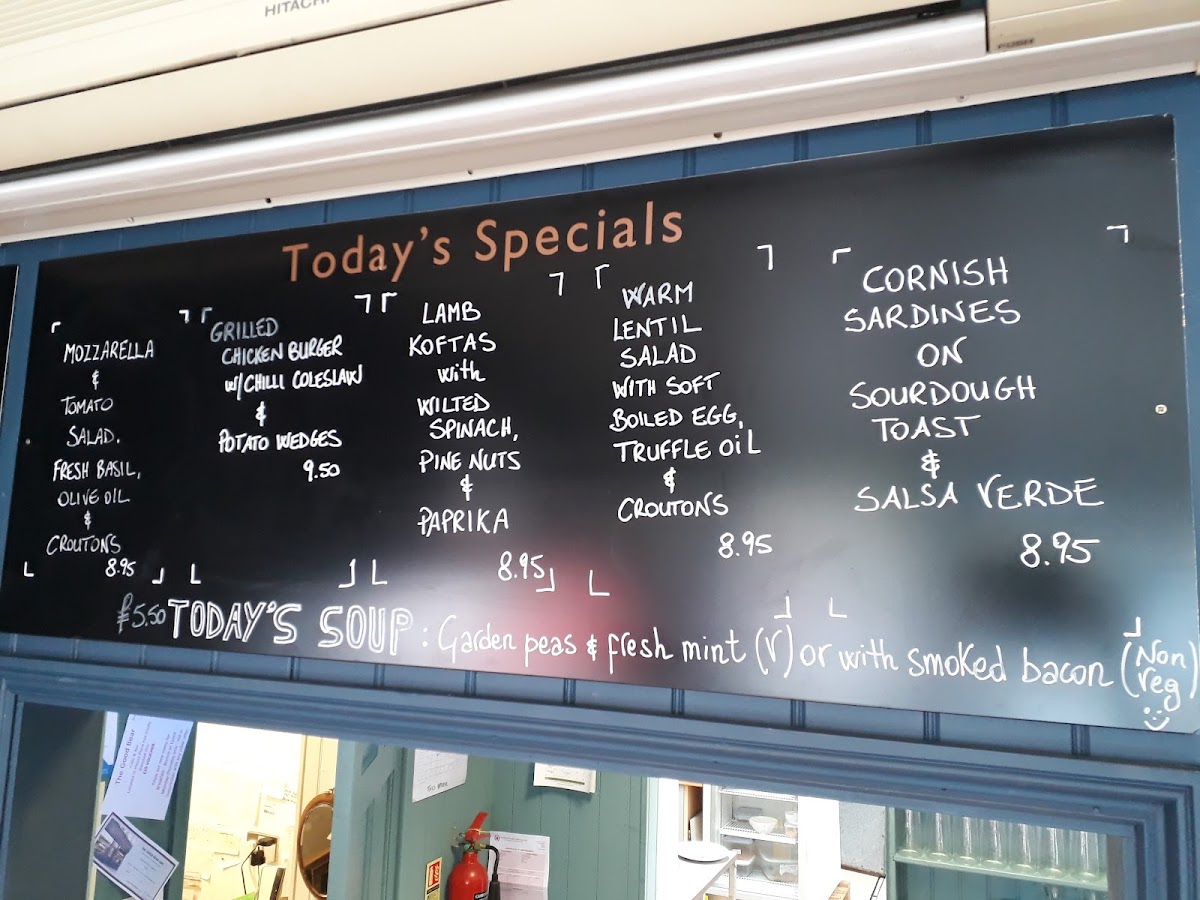 HITACHI
Today's Specials
MOZZARELLA
&
TOMATO
SALAD.
FRESH BASIL,
OLIVE OIL
&
CROUTONS
8.95
GRILLED
CHICKEN BURGER
W/CHILLI COLESLAW
&
POTATO WEDGES
9.50
LAMB
KOFTAS
with
WILTED
SPINACH,
PINE NUTS
&
PAPRIKA
8.95
WARM
LENTIL
SALAD
WITH SOFT
BOILED EGG,
TRUFFLE OiL
&
CROUTONS
8.95
CORNISH
SARDINES
ON
SOURDOUGH
TOAST
&
SALSA VERDE
8.95
£5.50 TODAY'S SOUP : Garden peas & fresh mint (V) or with smoked bacon (Non Veg)
The Good Bear